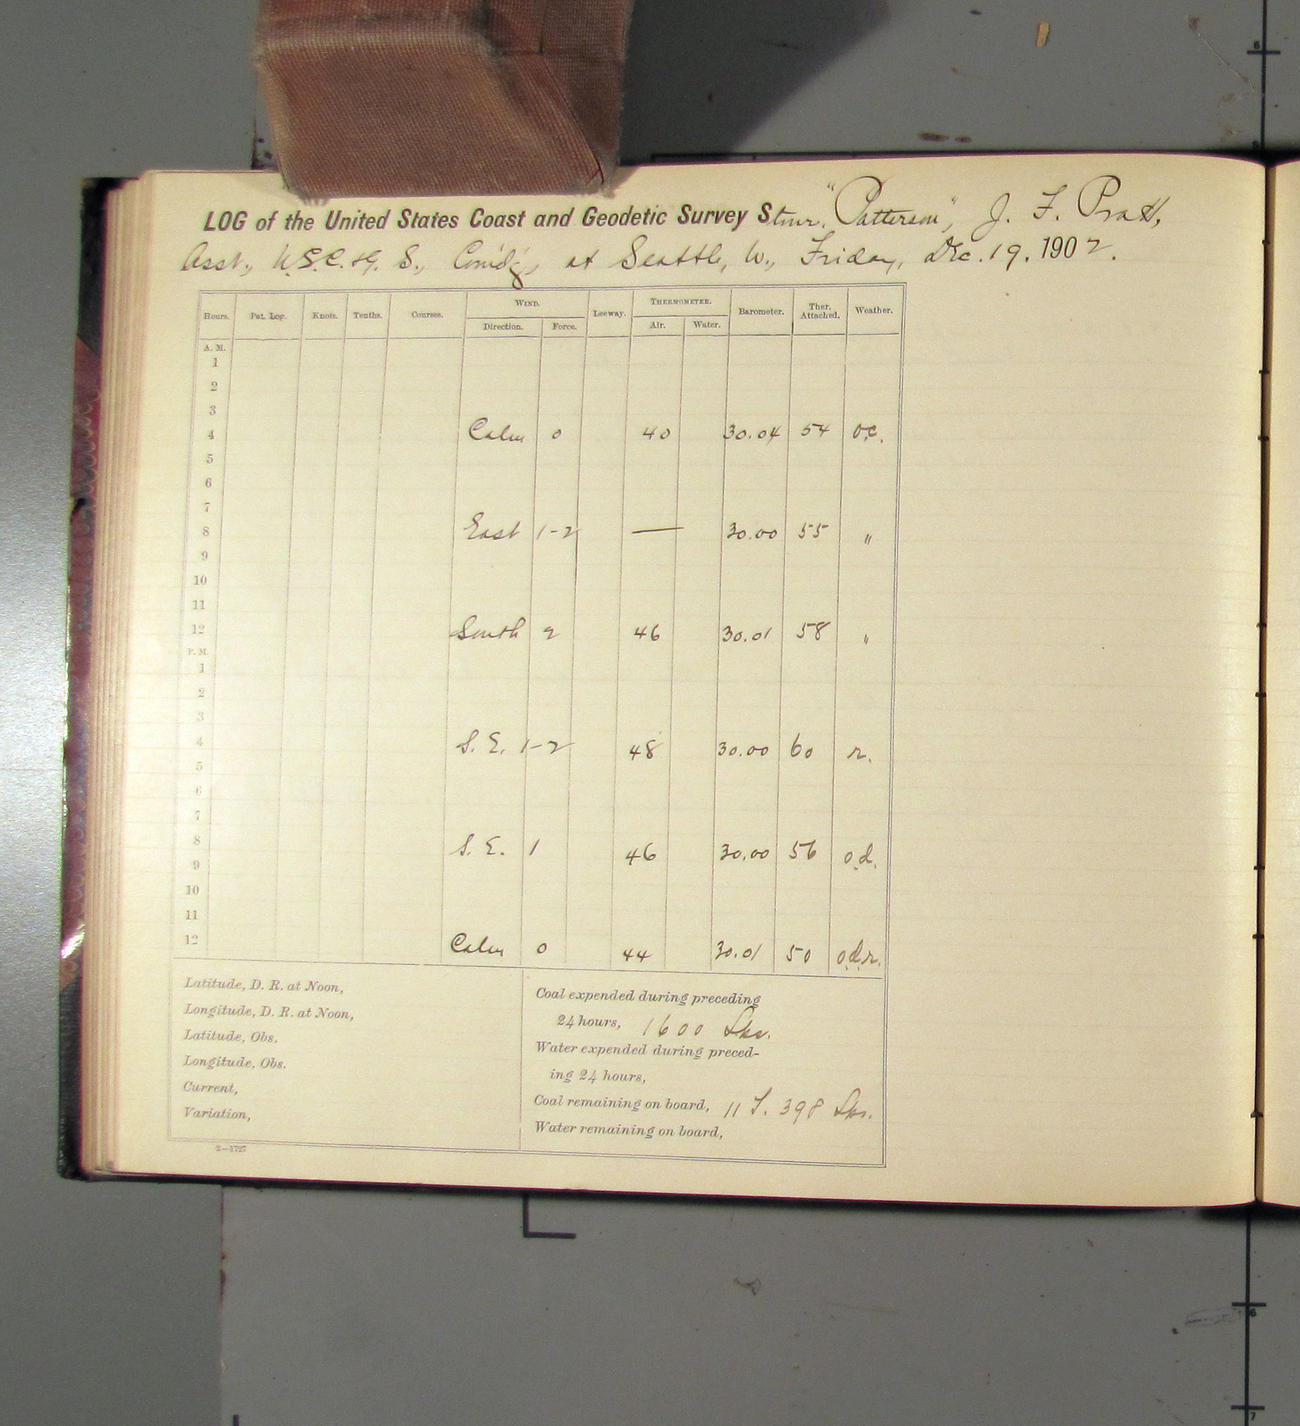 LOG of the United States Coast and Geodetic Survey Stmr. "Patterson", J. F. Pratt,
Asst., U.S.C. & G. S., Comd'g, at Seattle, W., Friday, Dec. 19, 1902.
WIND. THERMOMETER.
Hours. Pat. Log. Knots. Tenths. Courses. Direction. Force. Leeway. Air. Water. Barometer. Ther. Attached. Weather.
A. M.
1
2
3
4 Calm 0 40 30.04 54 o.c.
5
6
7
8 East 1-2 — 30.00 55 "
9
10
11
12 South 2 46 30.01 58 "
P. M.
1
2
3
4 S. E. 1-2 48 30.00 60 r.
5
6
7
8 S. E. 1 46 30.00 56 o.d.
9
10
11
12 Calm 0 44 30.01 50 o.d.r.
Latitude, D. R. at Noon,
Longitude, D. R. at Noon,
Latitude, Obs.
Longitude, Obs.
Current,
Variation,
Coal expended during preceding
24 hours, 1600 Lbs.
Water expended during preced-
ing 24 hours,
Coal remaining on board, 11 T. 398 Lbs.
Water remaining on board,
2—1727
6
7